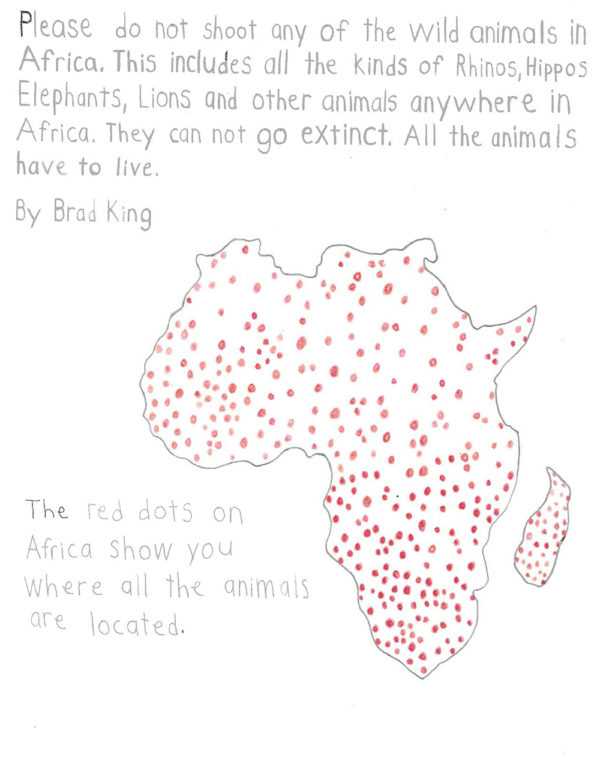 Please do not shoot any of the wild animals in
Africa. This includes all the kinds of Rhinos, Hippos
Elephants, Lions and other animals anywhere in
Africa. They can not go extinct. All the animals
have to live.
By Brad King
The red dots on
Africa show you
where all the animals
are located.